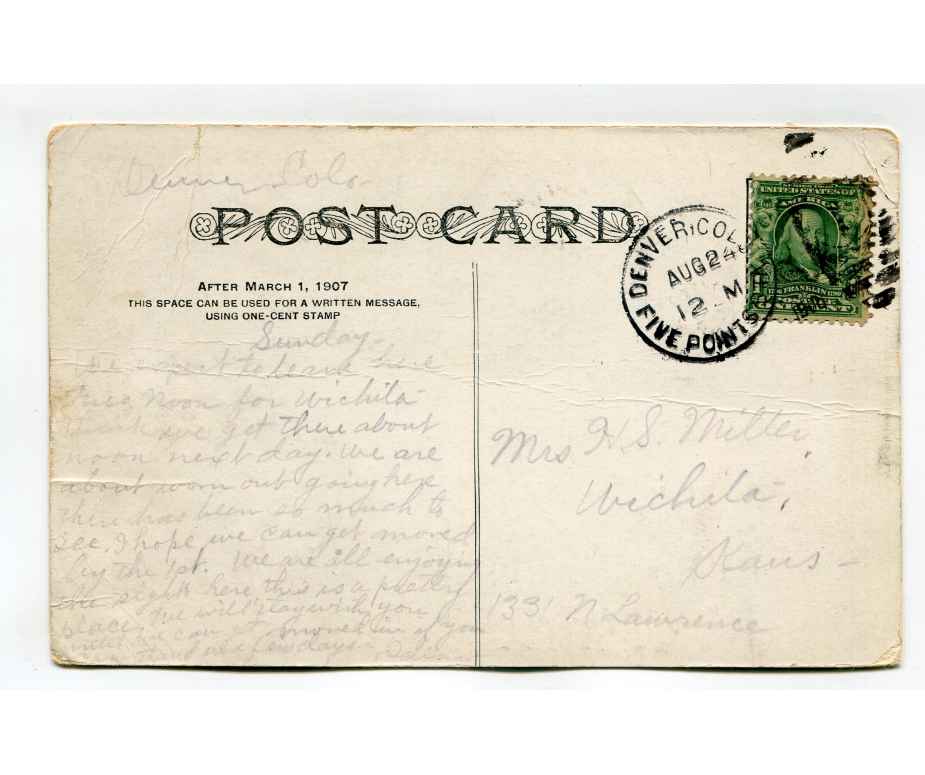 Denver Colo
POST CARD
AFTER MARCH 1, 1907
THIS SPACE CAN BE USED FOR A WRITTEN MESSAGE,
USING ONE-CENT STAMP
Sunday-
We expect to leave here
Tues Noon for Wichita
think we get there about
noon next day. We are
about worn out going here
there has been so much to
see. I hope we can get moved
by the 1st. We are all enjoying
the sight here this is a pretty
place. We will stay with you
until we can get moved in if you
few days
DENVER, COLO.
AUG 24
12-M
FIVE POINTS
UNITED STATES OF
AMERICA
FRANKLIN
Mrs H. S. Miller,
Wichita,
Kans-
1331 N Lawrence